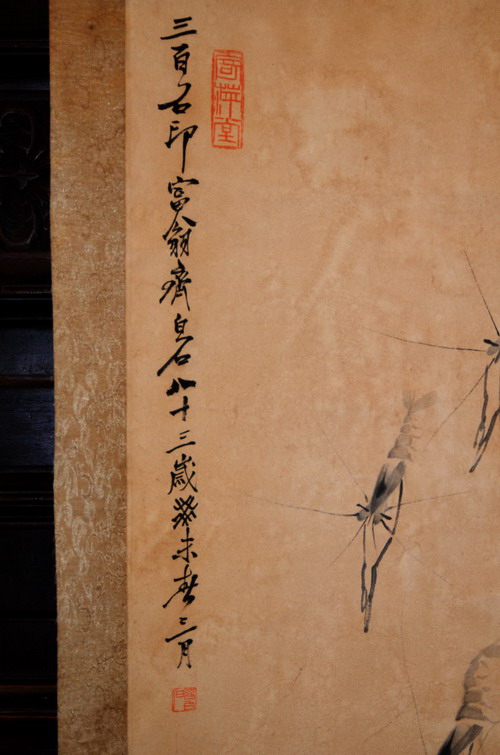 寄萍堂
三百石印富翁齊白石八十三歲癸未春三月